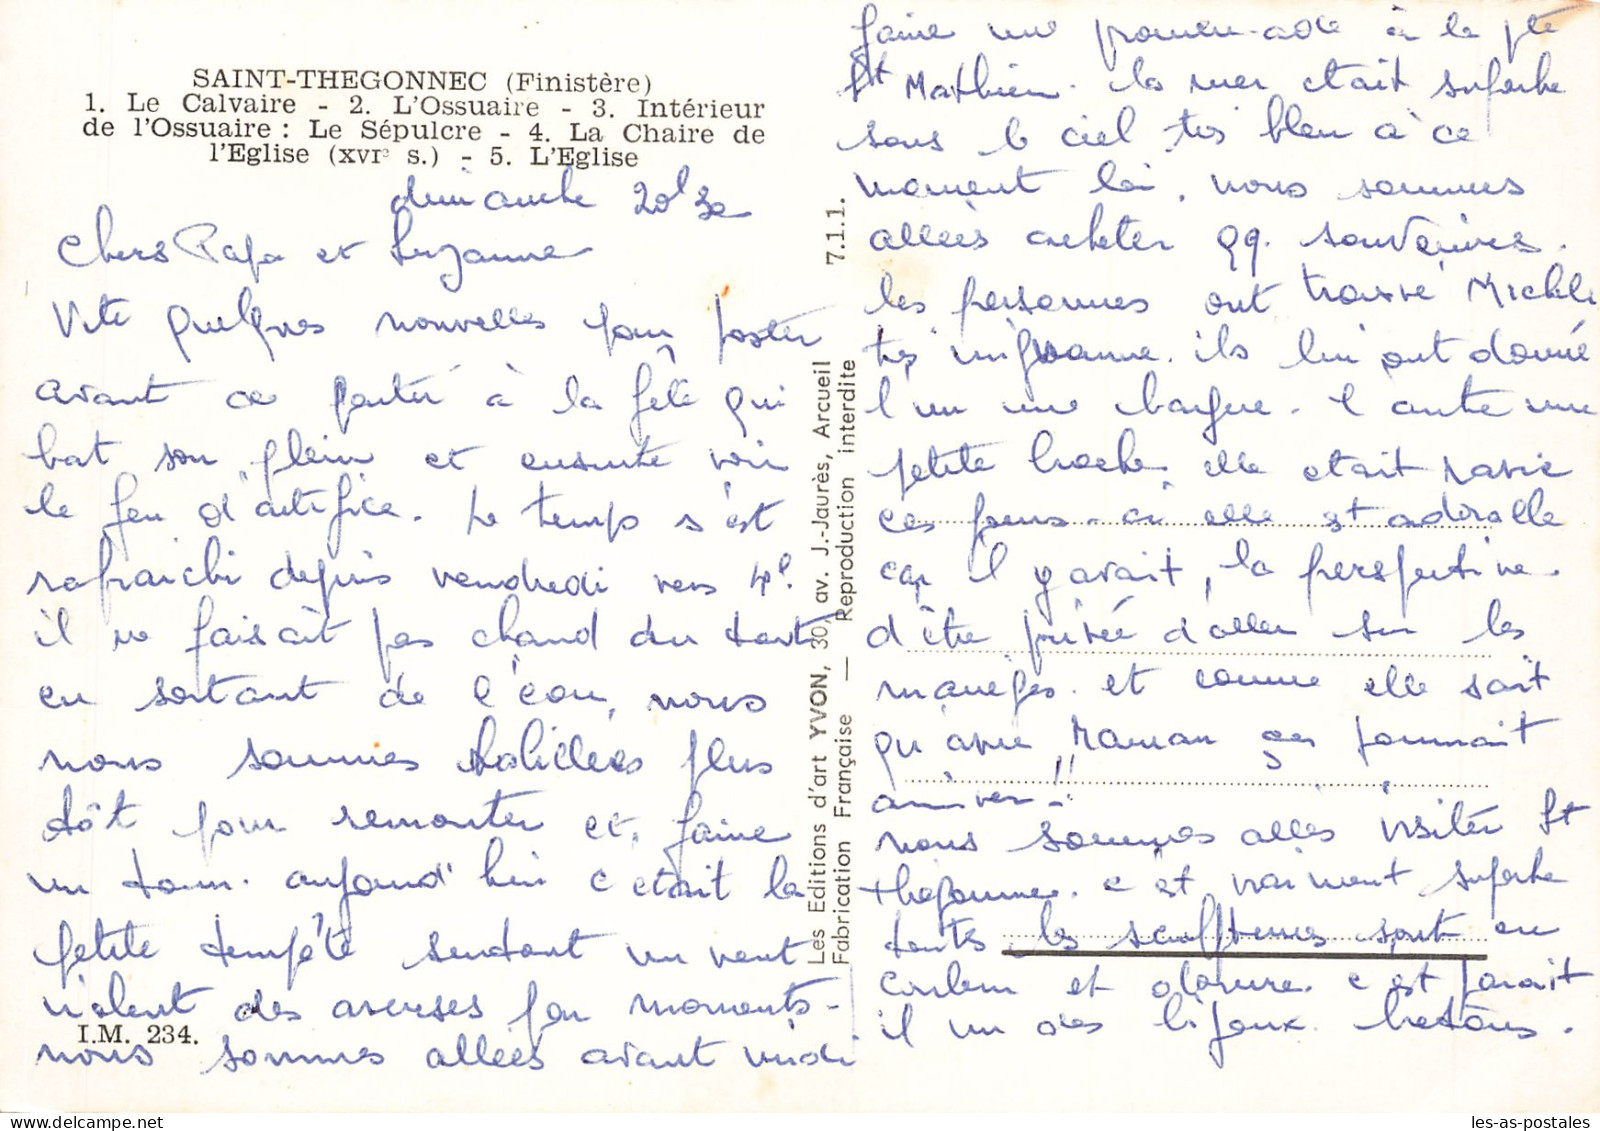 SAINT-THEGONNEC (Finistère)
1. Le Calvaire - 2. L'Ossuaire - 3. Intérieur
de l'Ossuaire : Le Sépulcre - 4. La Chaire de
l'Eglise (XVIe s.) - 5. L'Eglise
dimanche 20h30
Chers Papa et Suzanne
Vite quelques nouvelles pour poster
avant de partir à la fête qui
bat son plein et ensuite voir
le feu d'artifice. Le temps s'est
rafraichi depuis vendredi vers 4h.
il ne faisait pas chaud du tout
en sortant de l'eau, nous
nous sommes habillées plus
tôt pour remonter et faire
un tour. aujourd'hui c'était la
petite tempête surtout un vent
violent des averses par moments.
nous sommes allées avant midi
I.M. 234.
Les Editions d'art YVON, 30, av. J.-Jaurès, Arcueil
Fabrication Française — Reproduction interdite
7.1.1.
faire une promenade à la pte
St Mathieu. la mer était superbe
sous le ciel très bleu à ce
moment là. nous sommes
allées acheter qq. souvenirs.
les personnes ont trouvé Michèle
très mignonne. ils lui ont donné
l'un une bague. l'autre une
petite broche. elle était ravie
ces jours-ci elle est adorable
car il y avait, la perspective
d'être privée d'aller sur les
manèges. et comme elle sait
qu'avec Maman ça pourrait
arriver!!
nous sommes allés visiter St
Thegonnec. c'est vraiment superbe
toutes les sculptures sont en
couleur et dorure. c'est parait
il un des bijoux bretons.
les-as-postales.com